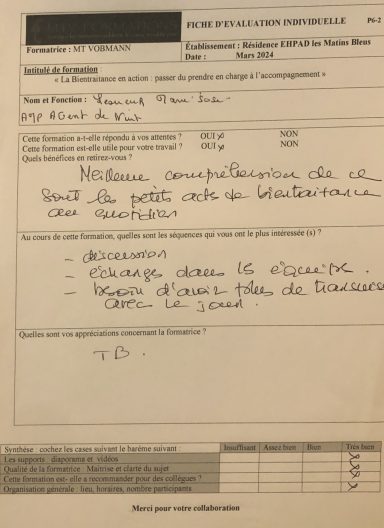 FICHE D'EVALUATION INDIVIDUELLE P6-2
Formatrice : MT VOBMANN
Établissement : Résidence EHPAD les Matins Bleus
Date : Mars 2024
Intitulé de formation :
« La Bientraitance en action : passer du prendre en charge à l'accompagnement »
Nom et Fonction :
Agent de Nuit
Cette formation a-t-elle répondu à vos attentes ? OUI x NON
Cette formation est-elle utile pour votre travail ? OUI x NON
Quels bénéfices en retirez-vous ?
Meilleure compréhension de ce
sont les petits acts de bientraitance
au quotidien
Au cours de cette formation, quelles sont les séquences qui vous ont le plus intéressée (s) ?
- discussion
- échanges dans l'équipe.
- besoin d'avoir de
avec le jour.
Quelles sont vos appréciations concernant la formatrice ?
TB.
Synthèse : cochez les cases suivant le barème suivant : Insuffisant Assez bien Bien Très bien
Les supports : diaporama et vidéos x
Qualité de la formatrice : Maitrise et clarté du sujet x
Cette formation est- elle à recommander pour des collègues ? x
Organisation générale : lieu, horaires, nombre participants x
Merci pour votre collaboration